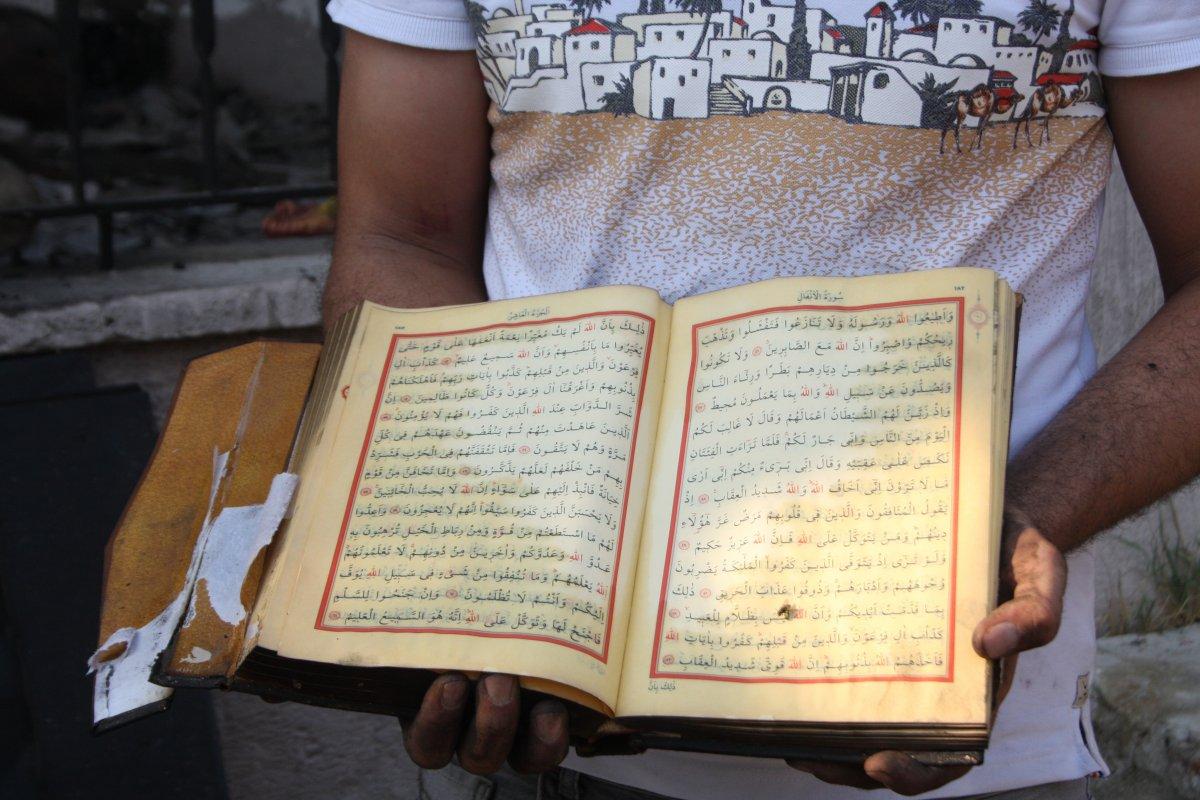 سُورَةُ الْاَنْفَالِ
وَاَطِيعُوا اللّٰهَ وَرَسُولَهُ وَلَا تَنَازَعُوا فَتَفْشَلُوا وَتَذْهَبَ
رِيحُكُمْ وَاصْبِرُوا اِنَّ اللّٰهَ مَعَ الصَّابِرِينَ وَلَا تَكُونُوا
كَالَّذِينَ خَرَجُوا مِنْ دِيَارِهِمْ بَطَرًا وَرِئَاءَ النَّاسِ
وَيَصُدُّونَ عَنْ سَبِيلِ اللّٰهِ وَاللّٰهُ بِمَا يَعْمَلُونَ مُحِيطٌ
وَاِذْ زَيَّنَ لَهُمُ الشَّيْطَانُ اَعْمَالَهُمْ وَقَالَ لَا غَالِبَ لَكُمُ
الْيَوْمَ مِنَ النَّاسِ وَاِنِّى جَارٌ لَكُمْ فَلَمَّا تَرَاءَتِ الْفِئَتَانِ
نَكَصَ عَلٰى عَقِبَيْهِ وَقَالَ اِنِّى بَرِىءٌ مِنْكُمْ اِنِّى اَرٰى
مَا لَا تَرَوْنَ اِنِّى اَخَافُ اللّٰهَ وَاللّٰهُ شَدِيدُ الْعِقَابِ اِذْ
يَقُولُ الْمُنَافِقُونَ وَالَّذِينَ فِى قُلُوبِهِمْ مَرَضٌ غَرَّ هٰؤُلَاءِ
دِينُهُمْ وَمَنْ يَتَوَكَّلْ عَلَى اللّٰهِ فَاِنَّ اللّٰهَ عَزِيزٌ حَكِيمٌ
وَلَوْ تَرٰى اِذْ يَتَوَفَّى الَّذِينَ كَفَرُوا الْمَلٰئِكَةُ يَضْرِبُونَ
وُجُوهَهُمْ وَاَدْبَارَهُمْ وَذُوقُوا عَذَابَ الْحَرِيقِ ذٰلِكَ
بِمَا قَدَّمَتْ اَيْدِيكُمْ وَاَنَّ اللّٰهَ لَيْسَ بِظَلَّامٍ لِلْعَبِيدِ
كَدَاْبِ اٰلِ فِرْعَوْنَ وَالَّذِينَ مِنْ قَبْلِهِمْ كَفَرُوا بِاٰيَاتِ اللّٰهِ
فَاَخَذَهُمُ اللّٰهُ بِذُنُوبِهِمْ اِنَّ اللّٰهَ قَوِىٌّ شَدِيدُ الْعِقَابِ
ذٰلِكَ بِاَنَّ
اَلْجُزْءُ الْعَاشِرُ
ذٰلِكَ بِاَنَّ اللّٰهَ لَمْ يَكُ مُغَيِّرًا نِعْمَةً اَنْعَمَهَا عَلٰى قَوْمٍ حَتّٰى
يُغَيِّرُوا مَا بِاَنْفُسِهِمْ وَاَنَّ اللّٰهَ سَمِيعٌ عَلِيمٌ كَدَاْبِ اٰلِ
فِرْعَوْنَ وَالَّذِينَ مِنْ قَبْلِهِمْ كَذَّبُوا بِاٰيَاتِ رَبِّهِمْ فَاَهْلَكْنَاهُمْ
بِذُنُوبِهِمْ وَاَغْرَقْنَا اٰلَ فِرْعَوْنَ وَكُلٌّ كَانُوا ظَالِمِينَ اِنَّ
شَرَّ الدَّوَابِّ عِنْدَ اللّٰهِ الَّذِينَ كَفَرُوا فَهُمْ لَا يُؤْمِنُونَ
اَلَّذِينَ عَاهَدْتَ مِنْهُمْ ثُمَّ يَنْقُضُونَ عَهْدَهُمْ فِى كُلِّ
مَرَّةٍ وَهُمْ لَا يَتَّقُونَ فَاِمَّا تَثْقَفَنَّهُمْ فِى الْحَرْبِ فَشَرِّدْ
بِهِمْ مَنْ خَلْفَهُمْ لَعَلَّهُمْ يَذَّكَّرُونَ وَاِمَّا تَخَافَنَّ مِنْ قَوْمٍ
خِيَانَةً فَانْبِذْ اِلَيْهِمْ عَلٰى سَوَاءٍ اِنَّ اللّٰهَ لَا يُحِبُّ الْخَائِنِينَ
وَلَا يَحْسَبَنَّ الَّذِينَ كَفَرُوا سَبَقُوا اِنَّهُمْ لَا يُعْجِزُونَ وَاَعِدُّوا
لَهُمْ مَا اسْتَطَعْتُمْ مِنْ قُوَّةٍ وَمِنْ رِبَاطِ الْخَيْلِ تُرْهِبُونَ بِهِ
عَدُوَّ اللّٰهِ وَعَدُوَّكُمْ وَاٰخَرِينَ مِنْ دُونِهِمْ لَا تَعْلَمُونَهُمْ
اَللّٰهُ يَعْلَمُهُمْ وَمَا تُنْفِقُوا مِنْ شَىْءٍ فِى سَبِيلِ اللّٰهِ يُوَفَّ
اِلَيْكُمْ وَاَنْتُمْ لَا تُظْلَمُونَ وَاِنْ جَنَحُوا لِلسَّلْمِ
فَاجْنَحْ لَهَا وَتَوَكَّلْ عَلَى اللّٰهِ اِنَّهُ هُوَ السَّمِيعُ الْعَلِيمُ